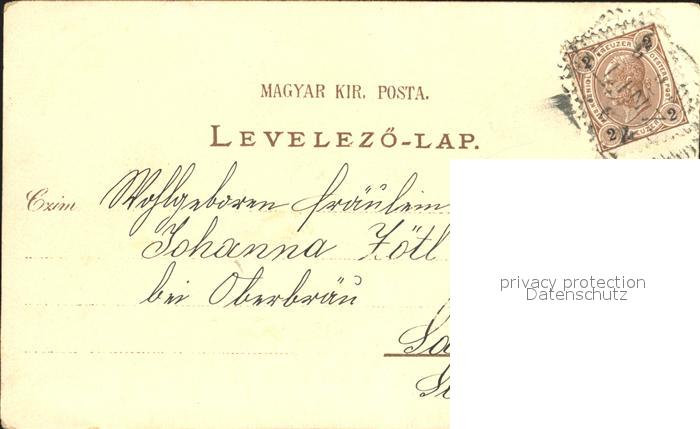 MAGYAR KIR. POSTA.
LEVELEZŐ-LAP.
Czim Wohlgeboren Fräulein
Johanna Zötl
bei Oberbräu
privacy protection
Datenschutz
2 KREUZER 2
2 2